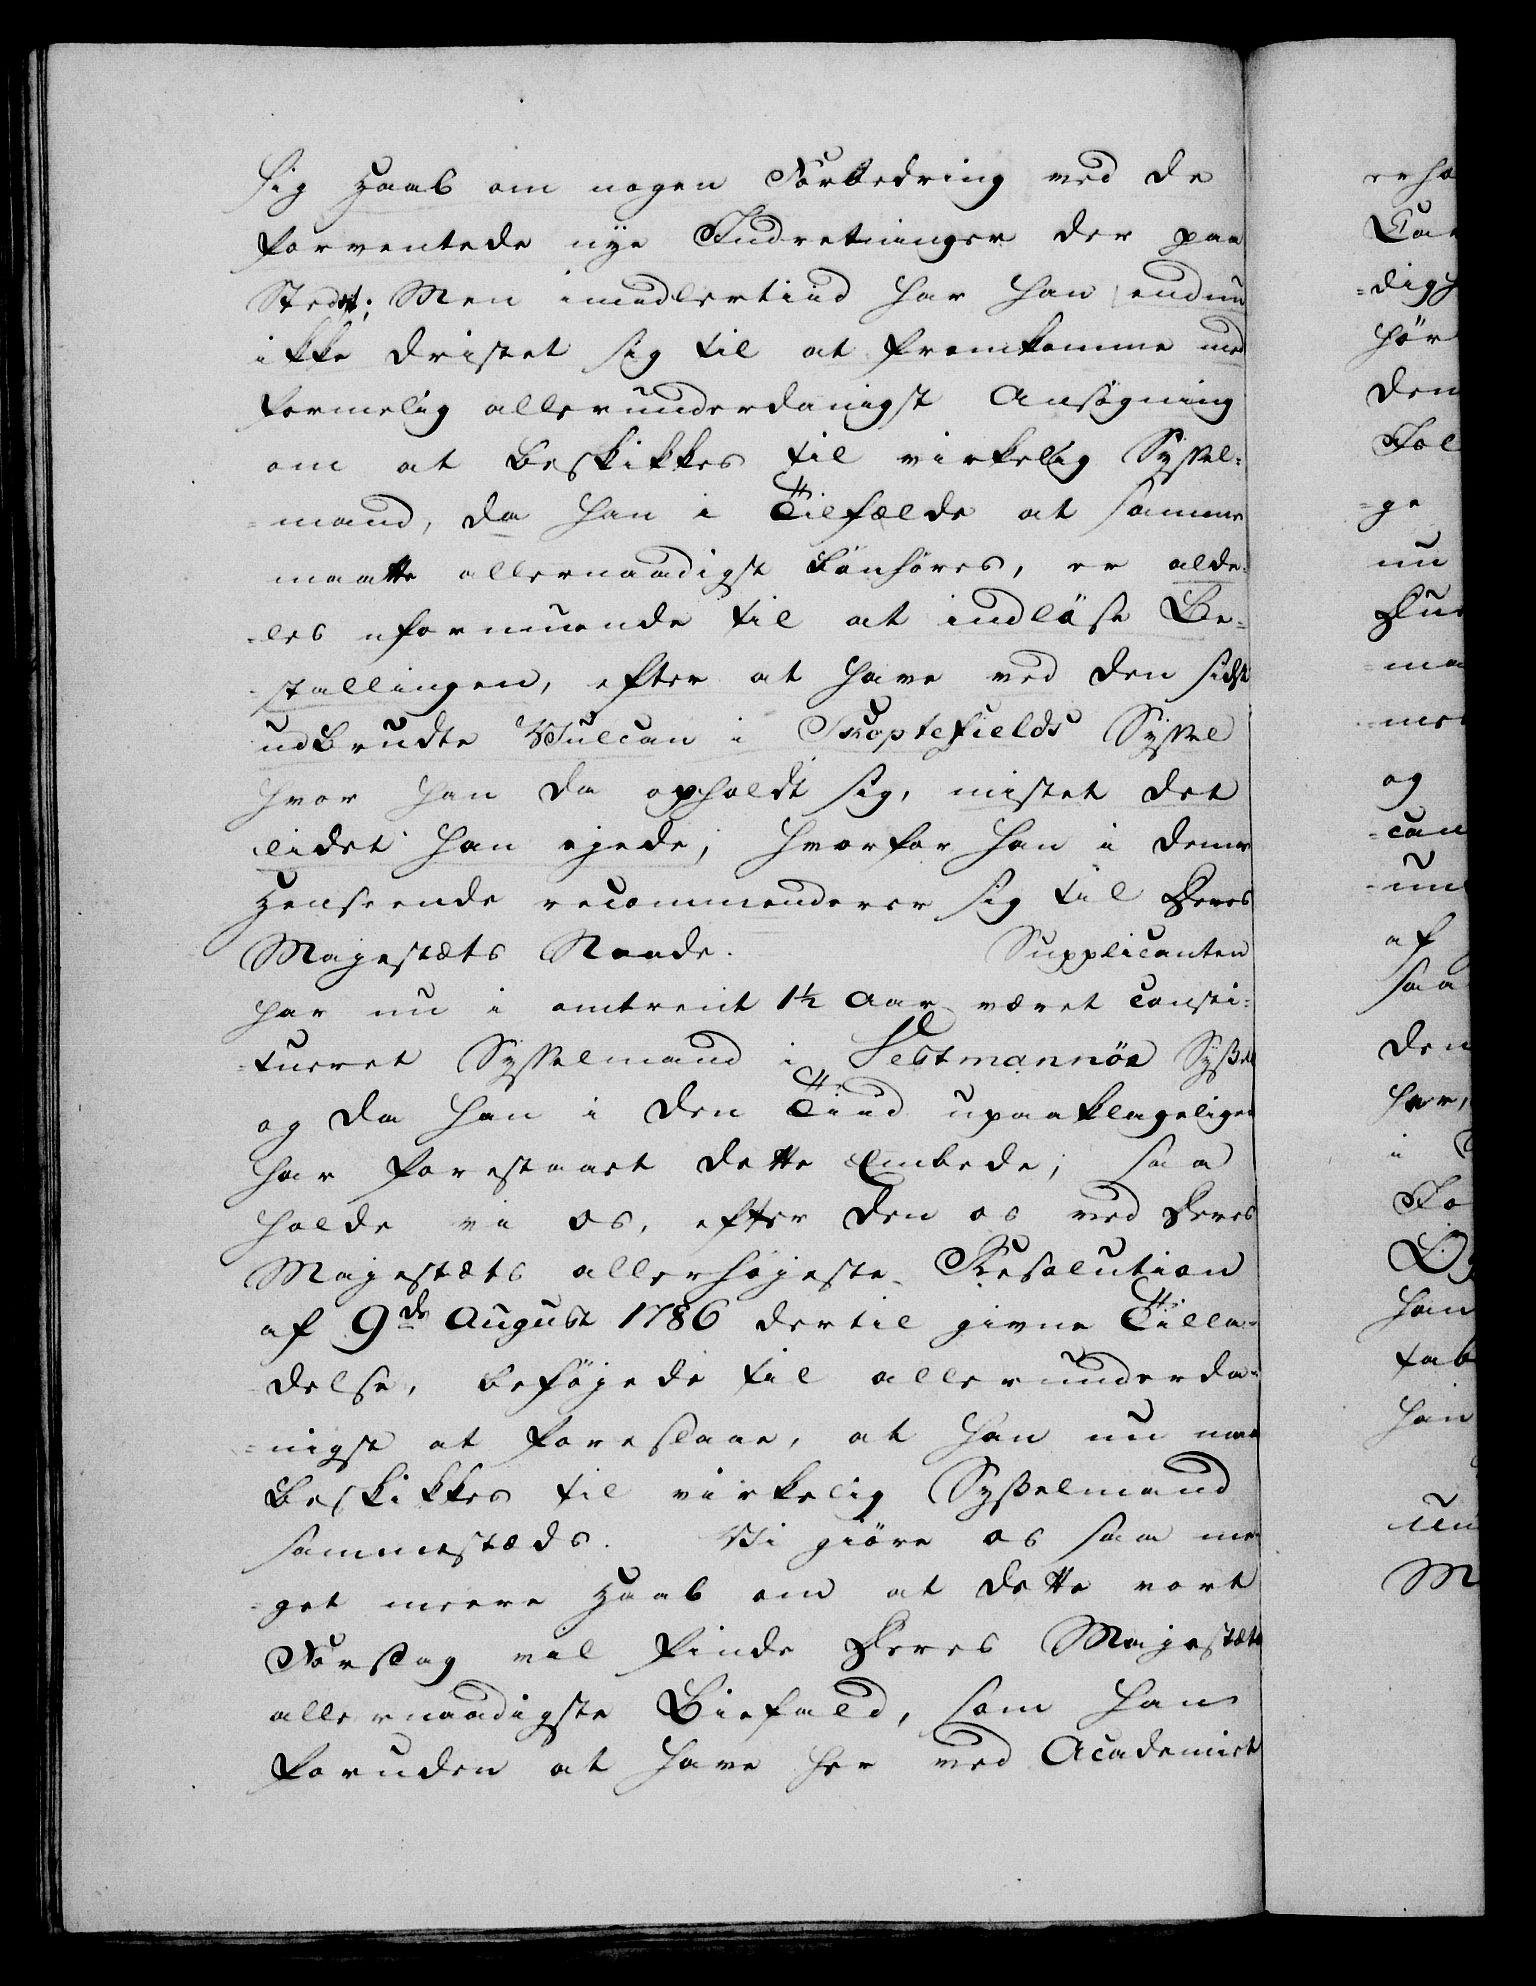 sig Haab om nogen Forbedring ved de
forventede nye Indretninger der paa
Stedet; Men imidlertiid har han endnu
ikke dristet sig til at fremkomme med
formelig allerunderdanigst Ansøgning
om at beskikkes til virkelig Syssel=
=mand, da han i Tilfælde at samme
maatte allernaadigst bønhøres, er alde=
=les uformuende til at indløse Be=
=stallingen, efter at have ved den sidst
udbrudte Vulcan i Skoptefields Syssel
hvor han da opholdt sig, mistet det
lidet han ejede; hvorfor han i denne
Henseende recommenderer sig til Deres
Majestæts Naade. Supplicanten
har nu i omtrent 1½ Aar været consti=
=tueret Sysselmand i Vestmannöe Syssel
og da han i den Tiid upaaklageligen
har forestaaet dette Embede; saa
holde vi os, efter den os ved Deres
Majestæts allerhøjeste Resolution
af 9de August 1786 dertil givne Tilla=
=delse, beføjede til allerunderda=
=nigst at foreslaae, at han nu maa
beskikkes til virkelig Sysselmand
sammestæds. Vi giöre os saa me=
=get meere Haab om at dette vort
Forslag vil finde Deres Majestæts
allernaadigste Biefald, som han
foruden at have her ved Academiet